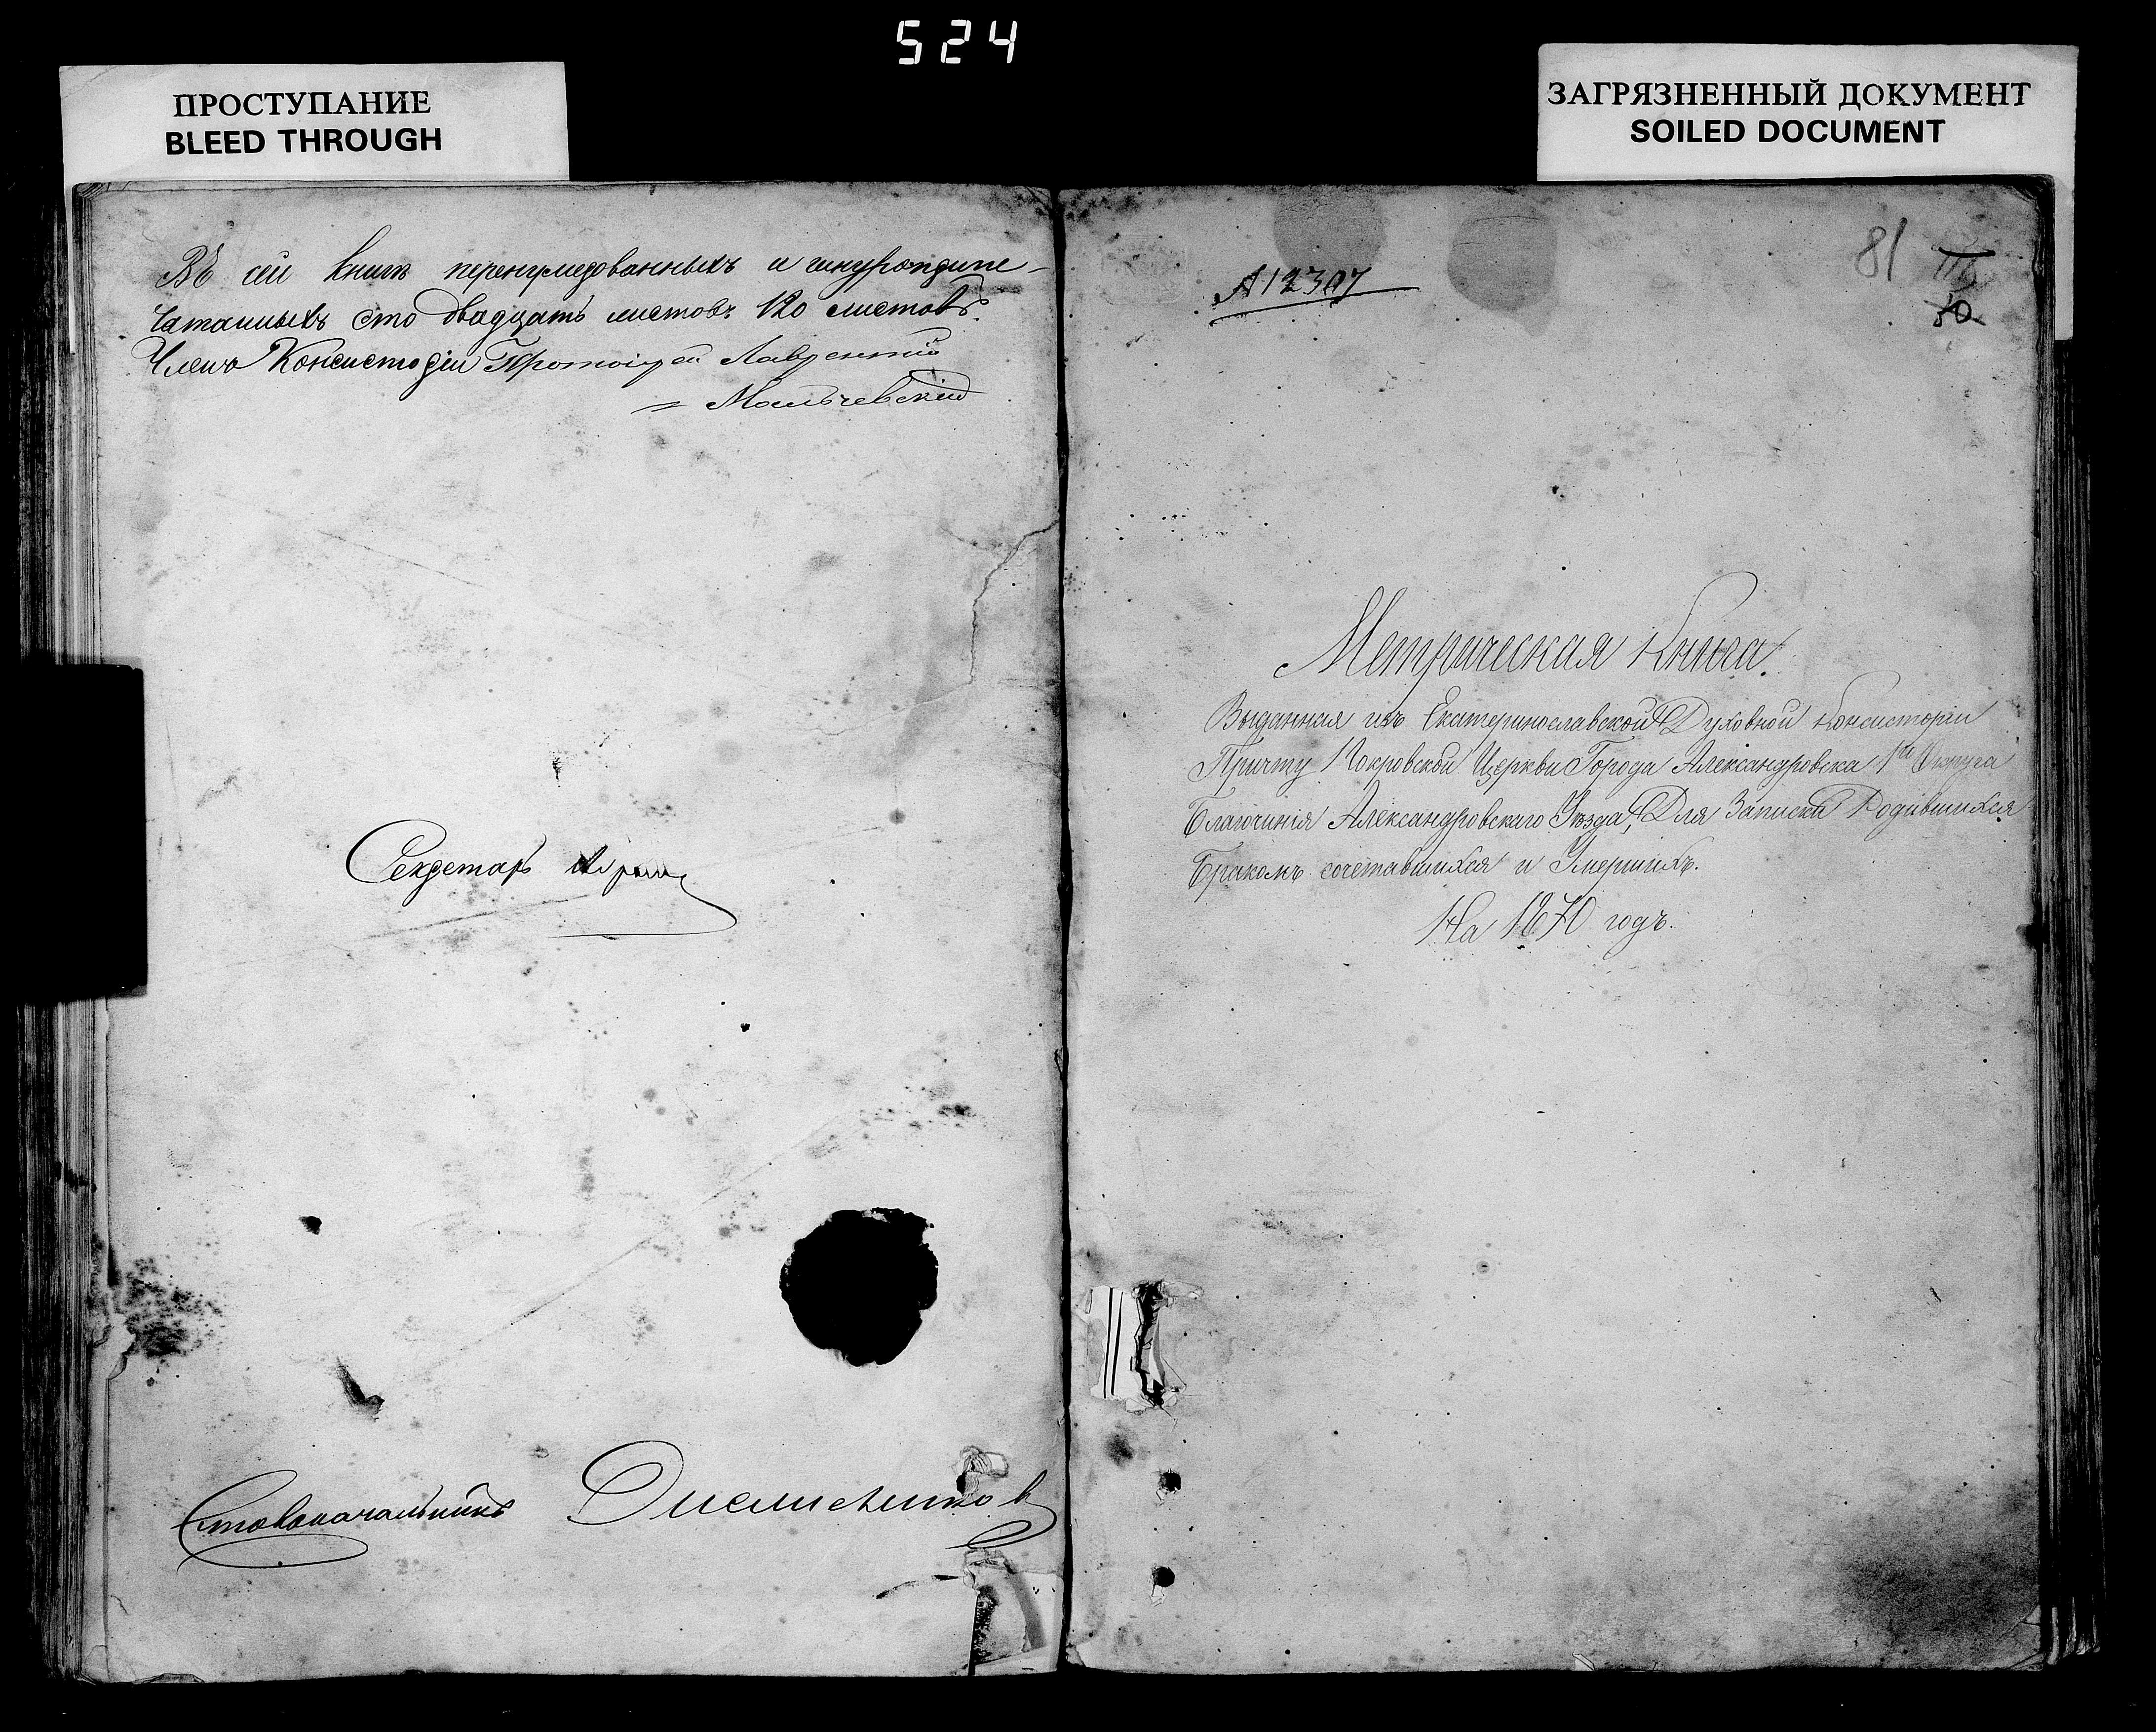 524
ПРОСТУПАНИЕ
BLEED THROUGH
ЗАГРЯЗНЕННЫЙ ДОКУМЕНТ
SOILED DOCUMENT
Въ сей книгѣ перенумерованныхъ и шнуроприпе-
чатанныхъ сто двадцать листовъ. 120 листовъ.
Членъ Консисторіи Протоіерей Лаврентій
= Мальчевскій
Секретарь
Столоначальникъ
81
50
А12307
Метрическая Книга
Выданная изъ Екатеринославской Духовной Консисторіи
Причту Покровской Церкви Города Александровска 1го Округа
Благочинія Александровскаго Уѣзда, Для Записки Родившихся
Бракомъ сочетавшихся и Умершихъ.
На 1870 годъ.